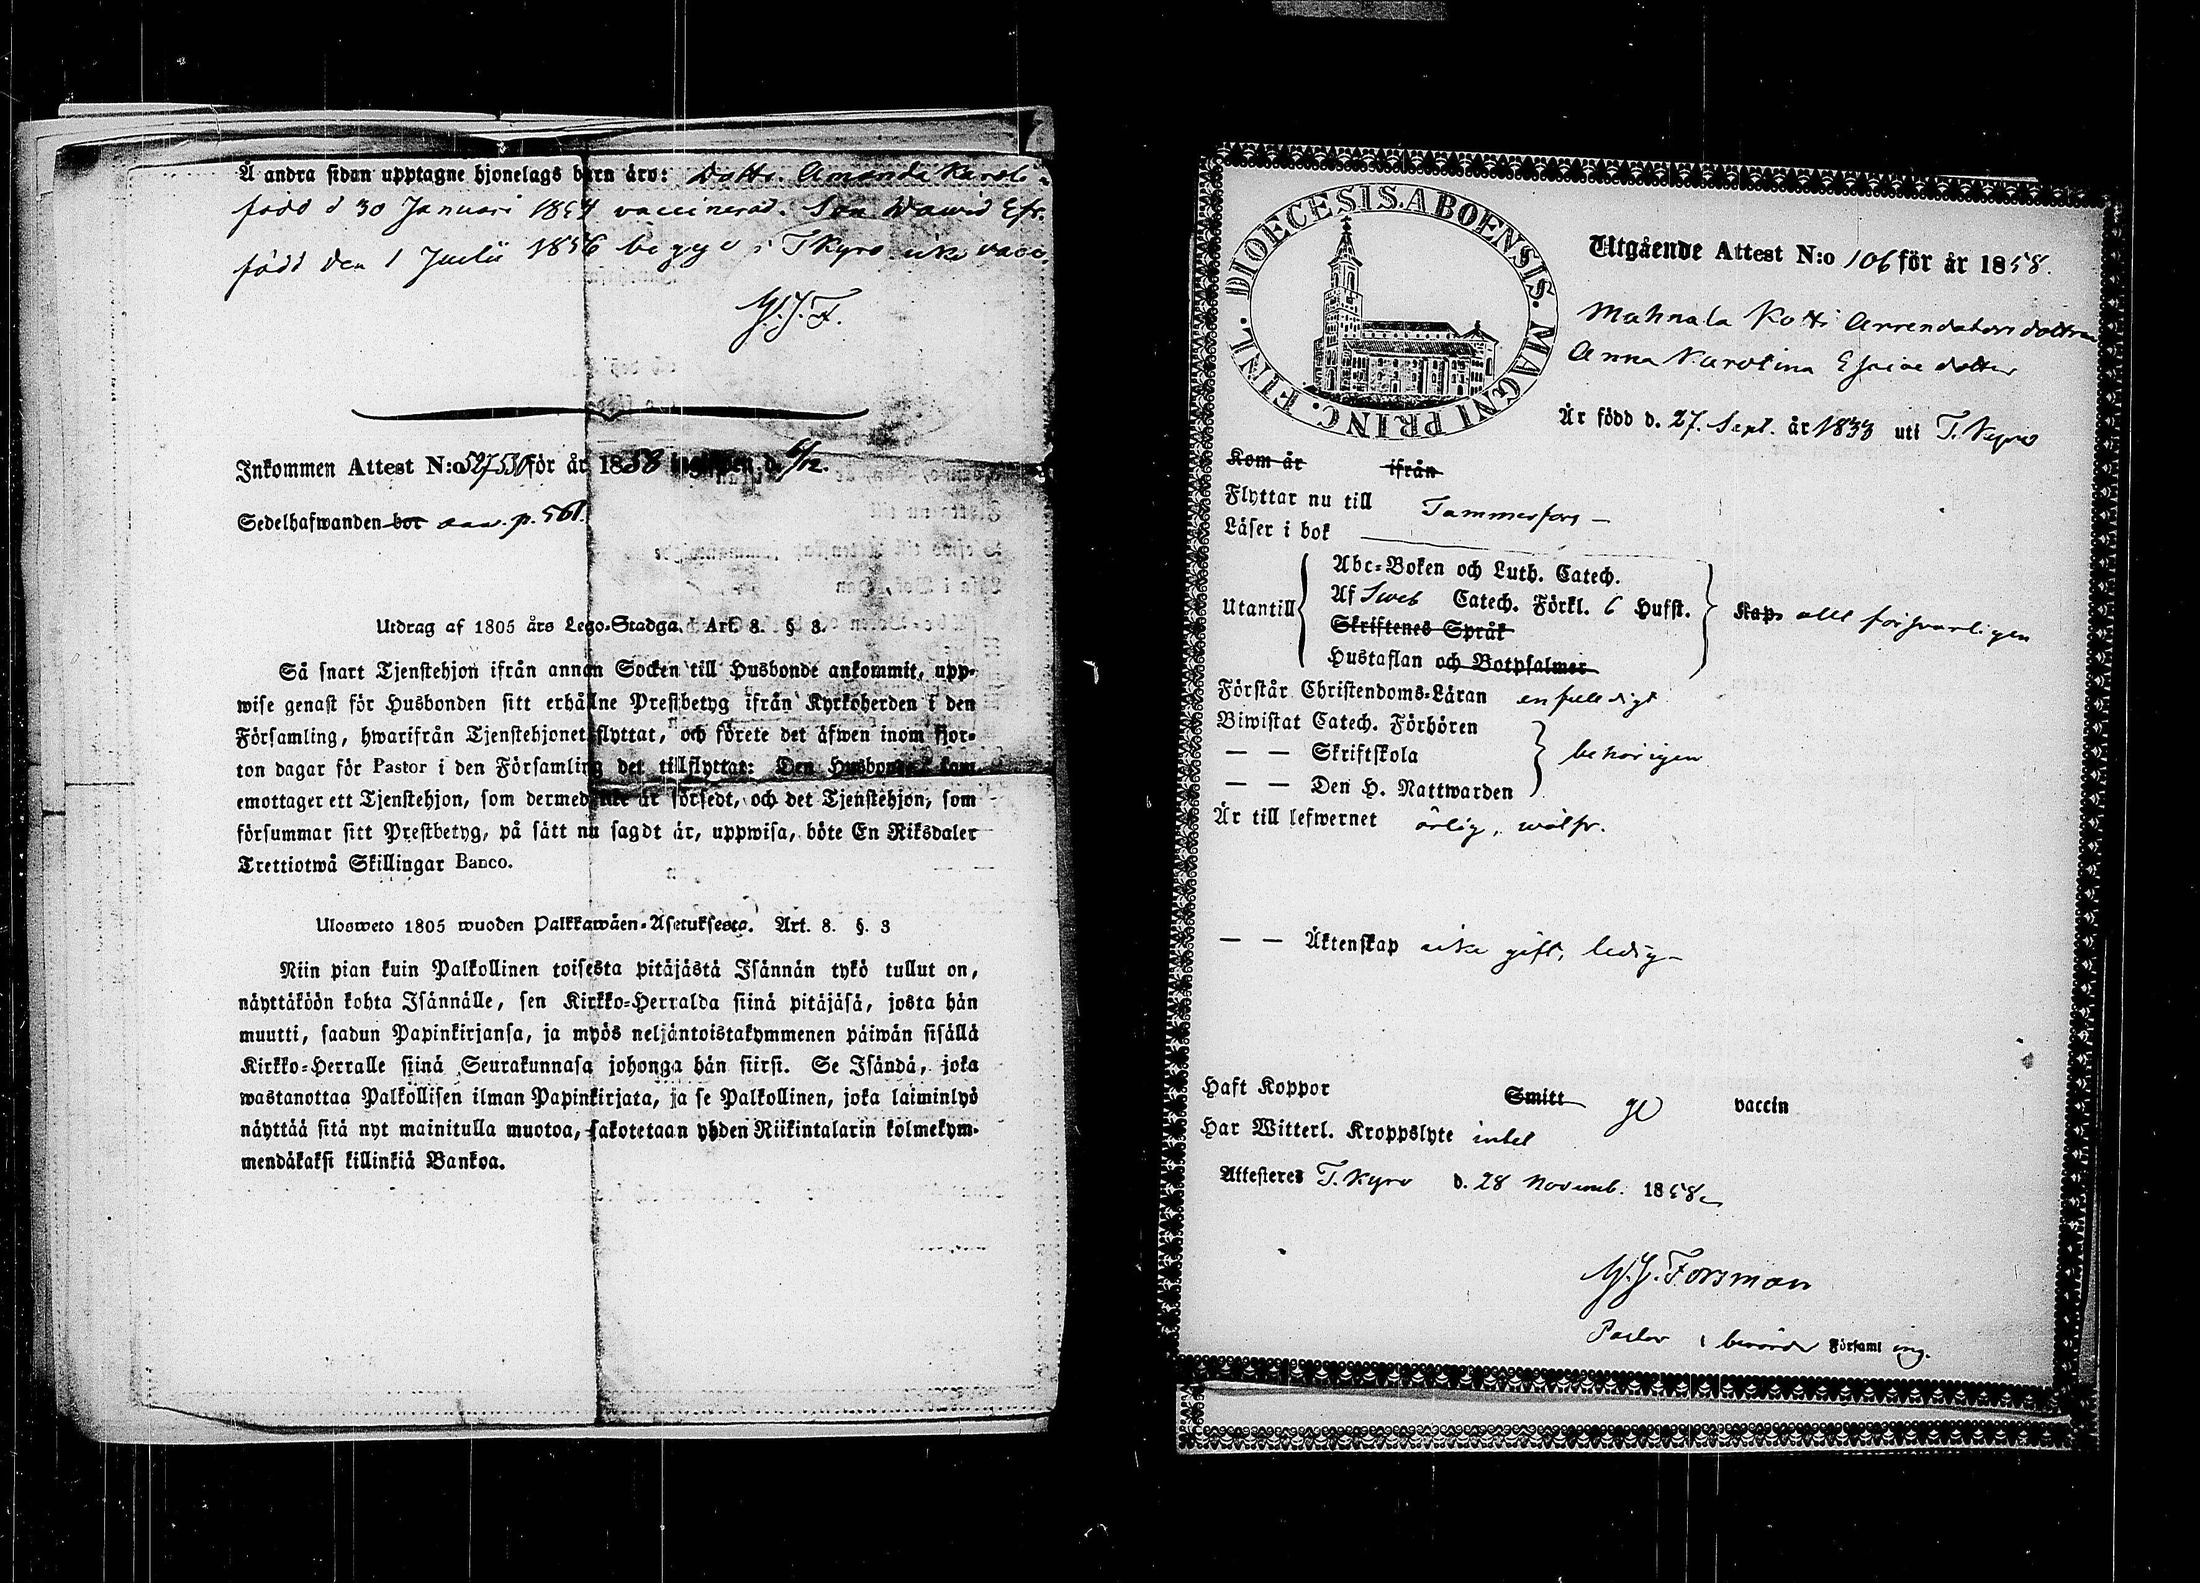 Å andra sidan upptagne hjonelags barn äro: Dottr. Amanda Karoli-
född d 30 Januari 1854 vaccinerad. Son Dawid Efr.
född den 1 Julii 1856 bägge i TKyro icke vacc.
F.
Inkommen Attest N:o 527-530 för år 1858 d. 6/12.
Sedelhafwanden bor p. 561.
Utdrag af 1805 års Lego-Stadga. Art. 8. § 3.
Så snart Tjenstehjon ifrån annan Socken till Husbonde ankommit, upp-
wise genast för Husbonden sitt erhållne Prestbetyg ifrån Kyrkoherden i den
Församling, hwarifrån Tjenstehjonet flyttat, och förete det äfwen inom fjor-
ton dagar för Pastor i den Församling det tillflyttat: Den Husbonde som
emottager ett Tjenstehjon, som dermed icke är försedt, och det Tjenstehjon, som
försummar sitt Prestbetyg, på sätt nu sagdt är, uppwisa, böte En Riksdaler
Trettiotwå Skillingar Banco.
Ulosweto 1805 wuoden Palkkawäen-Asetuksesta. Art. 8. §. 3
Niin pian kuin Palkollinen toisesta pitäjästä Isännän tykö tullut on,
näyttäköön kohta Isännälle, sen Kirkko-Herralda siinä pitäjäsä, josta hän
muutti, saadun Papinkirjansa, ja myös neljäntoistakymmenen päiwän sisällä
Kirkko-Herralle siinä Seurakunnasa johonga hän siirsi. Se Isändä, joka
wastanottaa Palkollisen ilman Papinkirjata, ja se Palkollinen, joka laiminlyö
näyttää sitä nyt mainitulla muotoa, sakotetaan yhden Riikintalarin kolmekym-
mendäkaksi killinkiä Bankoa.
DIOECESIS. ABOENSIS. MAGNI PRINC. FINL.
Utgående Attest N:o 106 för år 1858.
Mahnala Kotti Arrendators dottren
Anna Karolina Esaiae dotter
Är född d. 27. Sept. år 1833 uti T. Kyro
Kom år ifrån
Flyttar nu till Tammerfors –
Läser i bok
Utantill
Abc-Boken och Luth. Catech.
Af Sweb Catech. Förkl. 6 Hufst.
Skriftenes Språk
Hustaflan och Botpsalmer
Kap. allt försvarligen
Förstår Christendoms-Läran enfaldigt
Biwistat Catech. Förhören
— — Skriftskola
— — Den H. Nattwarden
behörigen
Är till lefwernet ärlig, wälfr.
— — Äktenskap icke gift, ledig –
Haft Koppor Smitt ge vaccin
Har Witterl. Kroppslyte intet
Attesteres T. Kyro d. 28 Novemb. 1858
Forsman
Pastor i berörde Församling.